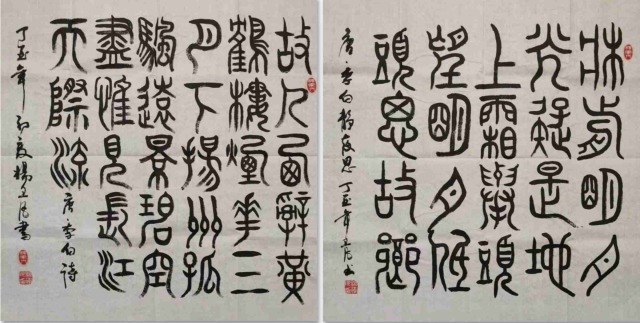 故人西辭黃
鶴樓煙華三
月下揚州孤
颿遠景碧空
盡惟見長江
天際流
唐李白詩
丁酉年初夏楊立凡書
牀前明月
光疑是地
上霜舉頭
望明月低
頭思故鄉
唐李白靜夜思丁酉年立凡书